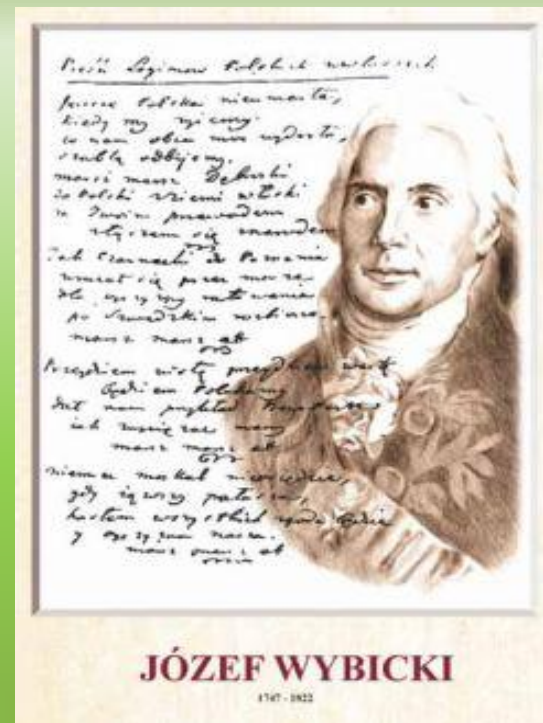 Pieśń Legionow Polskich we Włoszech
Jeszcze Polska nie umarła,
kiedy my żyjemy
co nam obca moc wydarła,
szablą odbijemy.
marsz marsz Dąbrowski
do Polski z ziemi włoski
za Twoim przewodem
złączem się z narodem
Jak Czarnecki do Poznania
wracał się przez morze
dla ojczyzny ratowania
po szwedzkim rozbiorze.
marsz marsz
Przejdziem Wisłę przejdziem Wartę
będziem Polakami
dał nam przykład Bonaparte
jak zwyciężać mamy
marsz marsz
niemiec moskal nie osiędzie,
gdy jąwszy pałasza,
hasłem wszystkich zgoda będzie
y ojczyzna nasza.
marsz marsz
JÓZEF WYBICKI
1747 - 1822